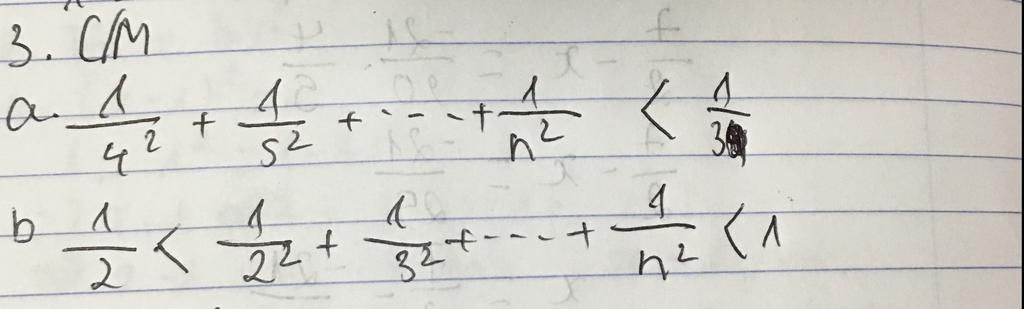 3. C/M
a. 1/4² + 1/5² + ---- + 1/n² < 1/3
b 1/2 < 1/2² + 1/3² + ---- + 1/n² < 1